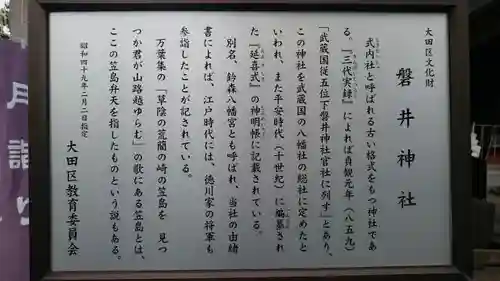 大田区文化財
磐井神社
式内社と呼ばれる古い格式をもつ神社であ
る。『三代実録』によれば貞観元年(八五九)
「武蔵国従五位下磐井神社官社に列す」とあり、
この神社を武蔵国の八幡社の総社に定めたと
いわれ、また平安時代(十世紀)に編纂され
た『延喜式』の神明帳に記載されている。
別名、鈴森八幡宮とも呼ばれ、当社の由緒
書によれば、江戸時代には、徳川家の将軍も
参詣したことが記されている。
万葉集の「草陰の荒藺の崎の笠島を 見つ
つか君が山路越ゆらむ」の歌にある笠島とは、
ここの笠島弁天を指したものという説もある。
昭和四十九年二月二日指定
大田区教育委員会
月詣り